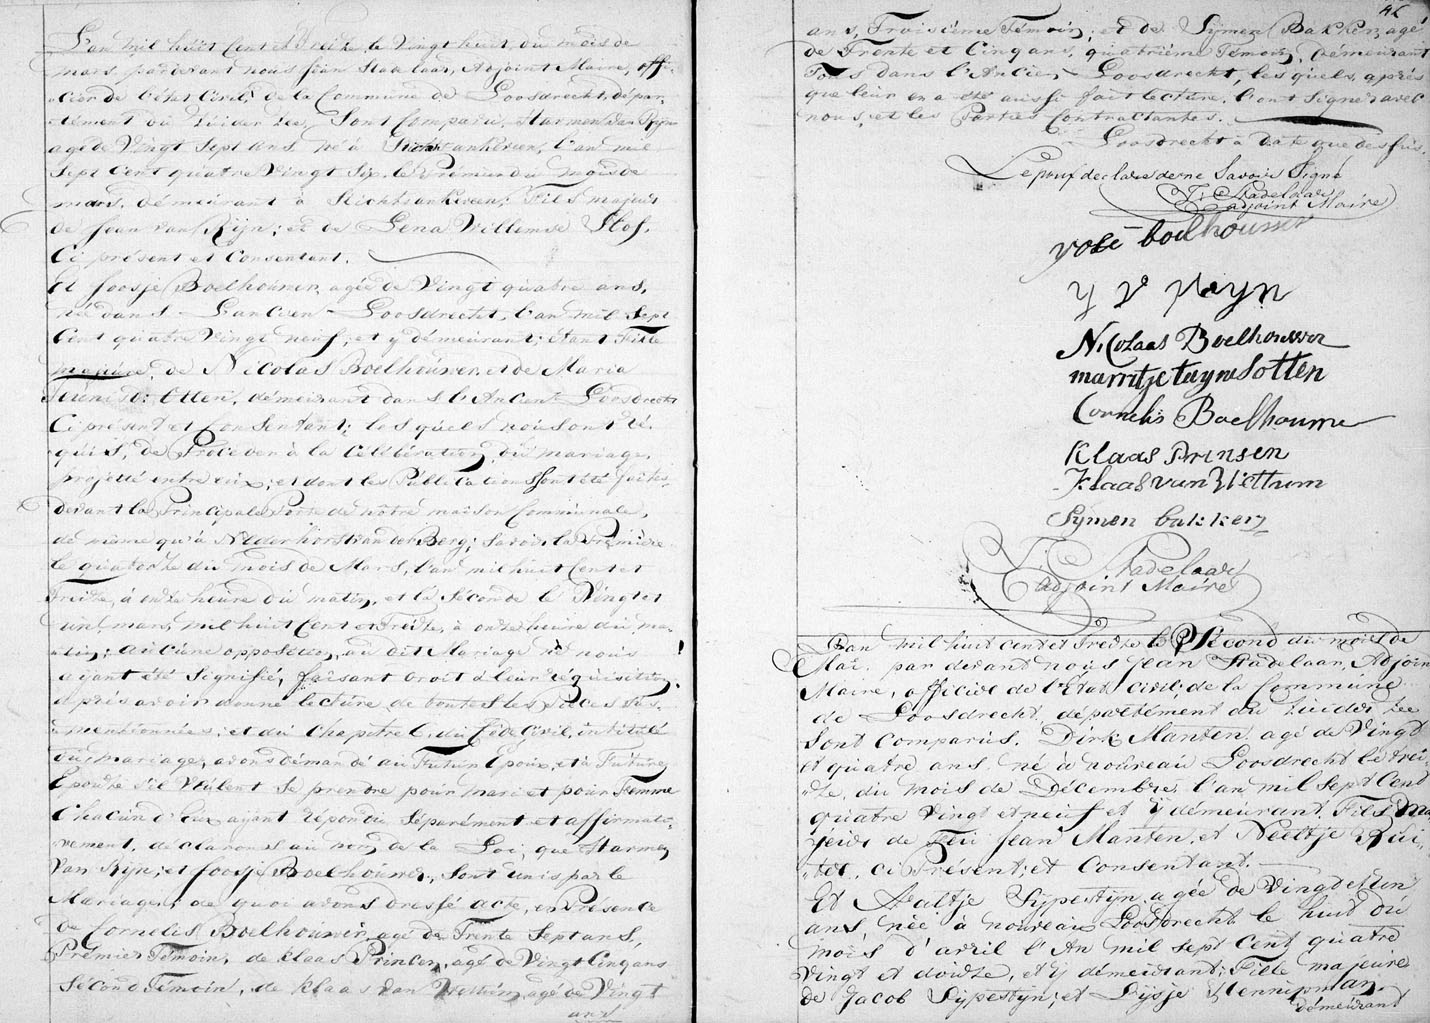 L'an mil huit Cent et Treize le Vingt huit, du mois de
mars, pardevant nous Jean Stadelaar, Adjoint Maire, offi-
-cier de l'état Civil, de la Commune de Loosdrecht, dépar-
-tément du Zuider Zee, Sont Comparu, Harmen van Rijn
agé de Vingt Sept ans, né à Stichtsankeveen, l'an mil
Sept Cent quatre Vingt Six, le Prémier du mois de
mars, démeurant à Stichtsankeveen; Fils majeur
de Jean van Rijn; et de Lena Willemse Stof,
Ci présent et Consentant.
Et Joosje Boelhouwer, agée de Vingt quatre ans,
née dans L'ancien Loosdrecht, l'an mil Sept
Cent quatre Vingt neuf; et y démeurant; étant Fille
majeure, de Nicolas Boelhouwer, et de Maria
Otten, démeurant dans l'Ancien Loosdrecht
Ci présent et Consentant; les quels nous ont ré-
-quis, de Proceder à la Célébration, du mariage,
projetté entre eux; et dont les Publications Sont été faites,
devant la Principale Porte de nôtre maison Communale,
de même qu'à Nederhorst van den Berg; Savoir la Prémière
le quatorze du mois de Mars, l'an mil huit Cent et
Treize, à onze heure du matin, et la Séconde le Vingt et
un, mars, mil huit Cent et Treize, à onze heure du ma-
-tin; aucune opposition, au dit Mariage ne nous
ayant été Signifié, faisant droit à leur réquisition,
après avoir donné lecture de toutes les Pièces Sus-
-mentionnées; et du Chapitre 6, du Code Civil, intitulé
du mariage, avons démandé au Futur Epoux, et à Future
Epouze S'il Veulent Se prendre pour mari et pour Femme
Chacun d'Eux ayant répondu Séparément et affirmati-
-vement, déclarons au nom de la Loi, que Harmen
van Rijn; et Joosje Boelhouwer, Sont unis par le
Mariage; de quoi avons dressé acte, en Présence
de Cornelis Boelhouwer, agé de Trente Sept ans,
Prémier Témoin, de Klaas Princen, agé de Vingt Cinq ans
Sécond Témoin, de Klaas van Wetthum, agé de Vingt
ans
ans, Troisième Témoin, et de Symen Bakker, agé
de Trente et Cinq ans, quatrième Témoin, démeurant
Tous dans l'Ancien Loosdrecht, les quels, après
que leur en a été aussi fait lecture, l'ont Signer avec
nous, et les Parties Contractantes.
Loosdrecht à date que dessus.
L'epouf declare de ne Savoir Signé
Stadelaar
adjoint Maire
yosē boelhouwer
y v Reyn
Nicolaas Boelhouwer
marritje Otten
Cornelis Boelhouwe
Klaas Prinsen
Klaas van Wetthum
Symen bakker
Stadelaar
adjoint Maire
L'an mil huit cent et Treize le Sécond du mois de
Mai, par devant nous Jean Stadelaar, Adjoin
Maire, officier de l'Etat civil; de la Commune
de Loosdrecht, département du Zuider Zee
Sont Comparus. Dirk Manten agé de Vingt
et quatre ans. né à nouveau Loosdrecht le trei-
-ze, du mois de Décembre, l'an mil sept Cent
quatre Vingt et neuf et y démeurant. Fils ma-
-jeur de Feu Jean Manten, et Neeltje
ci Présent, et Consentant.
Et Aaltje Sypestyn, agée de Vingt et un
ans, née à nouveau Loosdrecht le huit du
mois d'avril l'An mil sept Cent quatre
Vingt et douze, et y démeurant; Fille majeure
de Jacob Sypestyn; et Lysje Hennipman,
démeurant